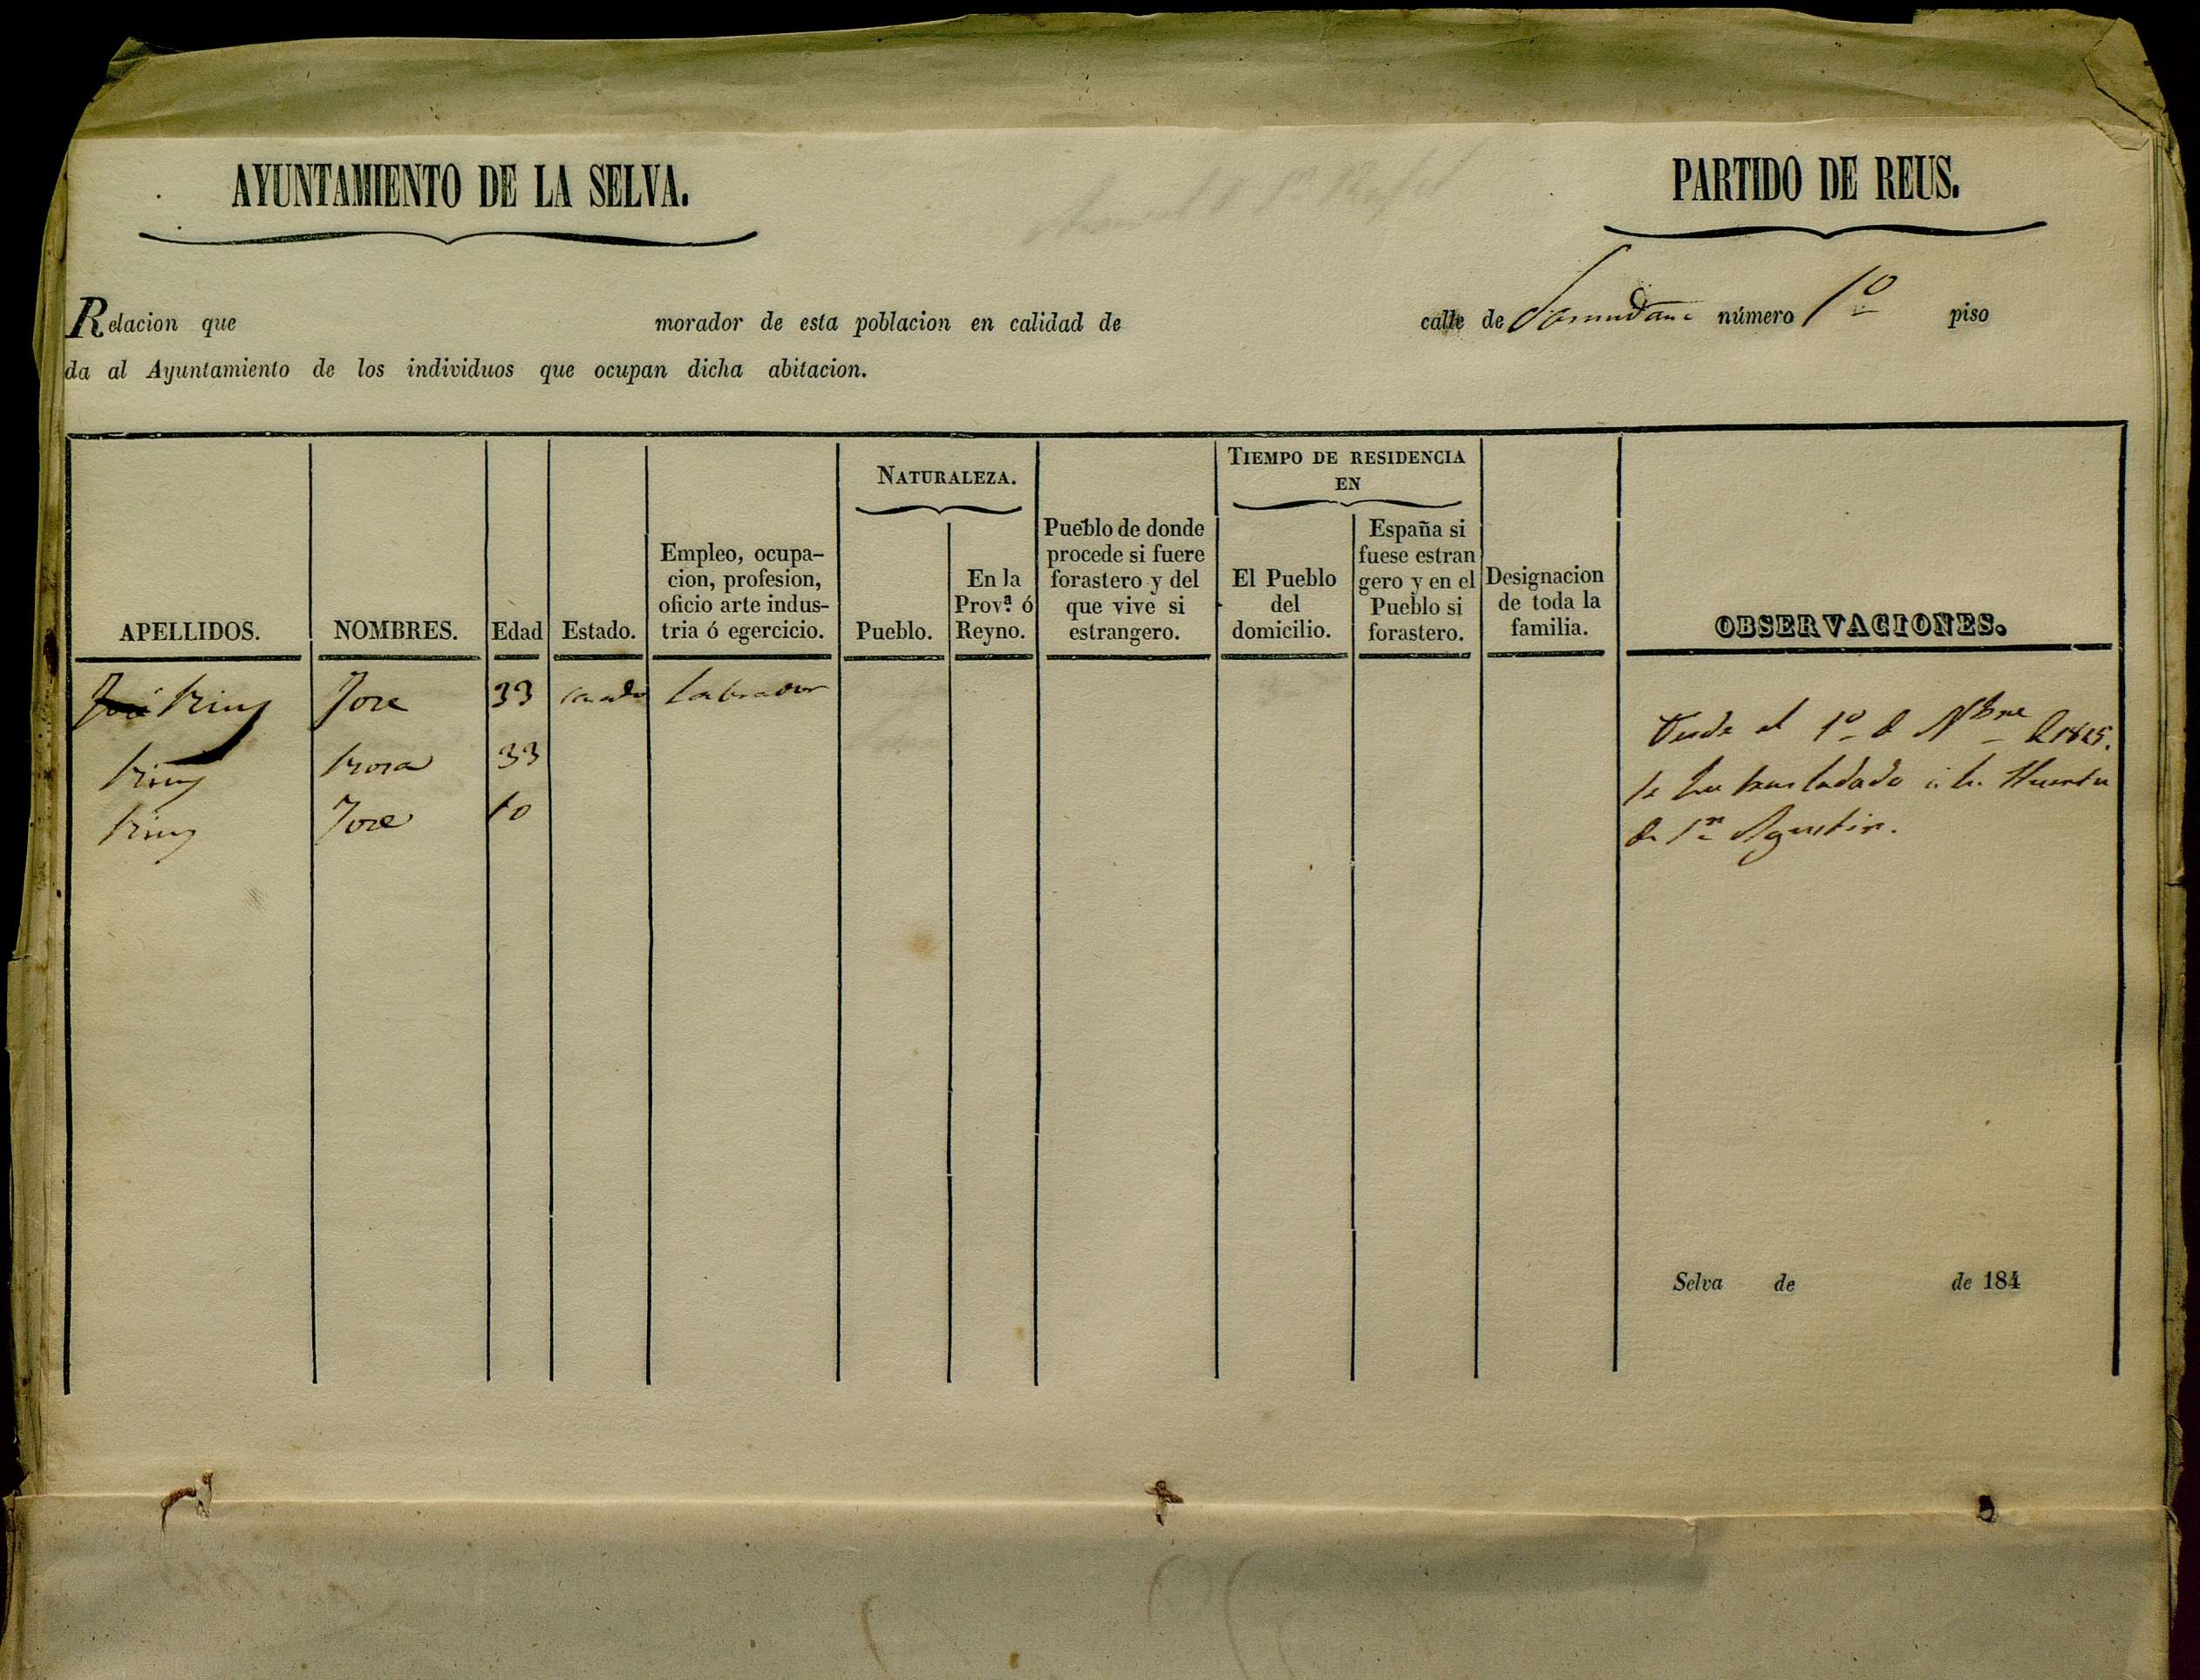 AYUNTAMIENTO DE LA SELVA.
PARTIDO DE REUS.
Relacion que morador de esta poblacion en calidad de calle de número 1º piso
da al Ayuntamiento de los individuos que ocupan dicha abitacion.
APELLIDOS.
NOMBRES.
Edad
Estado.
Empleo, ocupa-
cion, profesion,
oficio arte indus-
tria ó egercicio.
NATURALEZA.
Pueblo.
En la
Prov.ª ó
Reyno.
Pueblo de donde
procede si fuere
forastero y del
que vive si
estrangero.
TIEMPO DE RESIDENCIA
EN
El Pueblo
del
domicilio.
España si
fuese estran
gero y en el
Pueblo si
forastero.
Designacion
de toda la
familia.
OBSERVACIONES.
José 33 casado Labrador
Rosa 33
José 10
Desde el 1º de Nbre
se ha trasladado á la Huerta
de Sn Agustin.
Selva de de 184